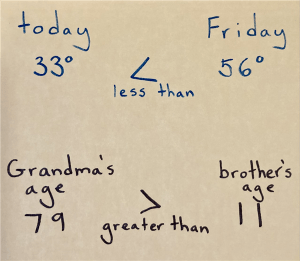 today < Friday
33° less than 56°
Grandma's age > brother's age
79 greater than 11